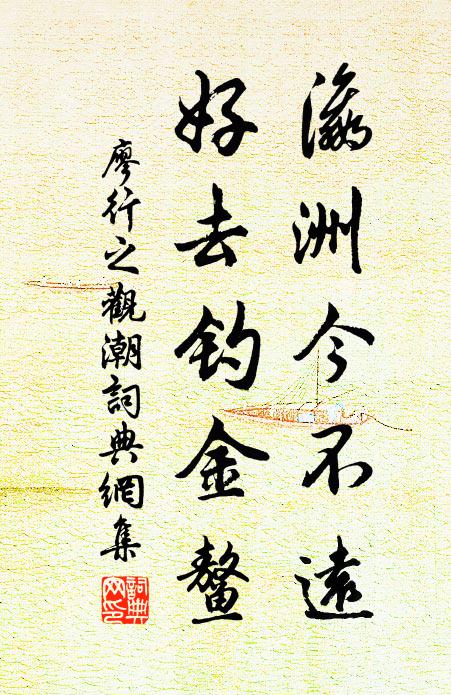 瀛洲今不遠
好去钓金鳌
廖行之觀潮詞典網集
詞典網印